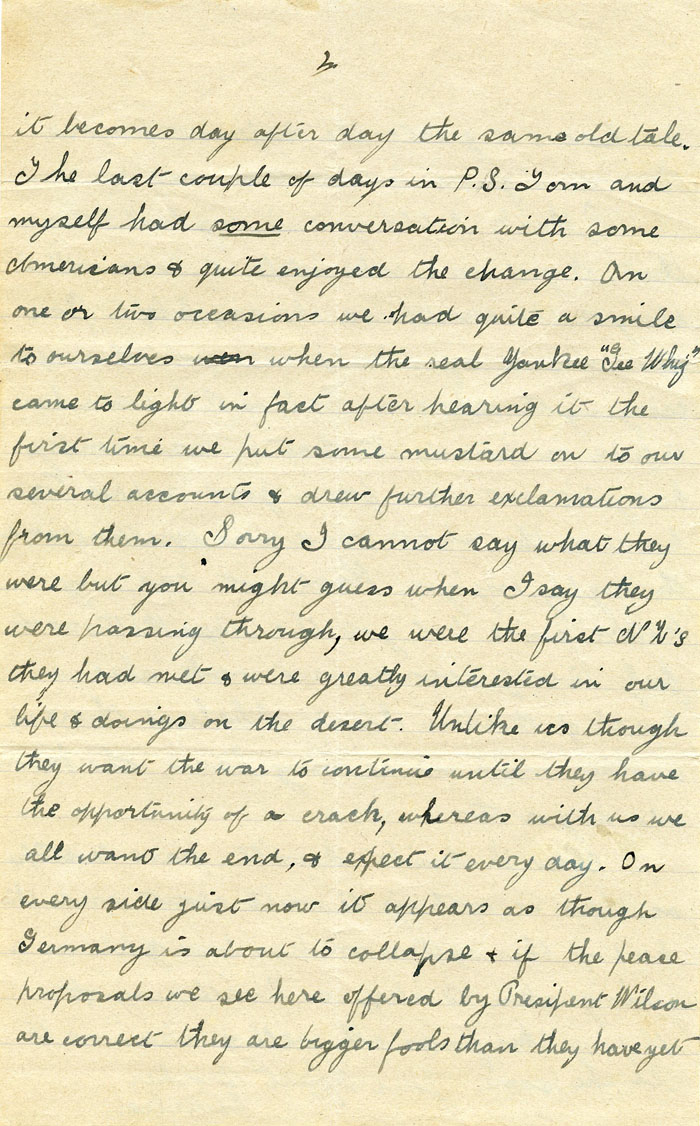 2
it becomes day after day the same old tale.
The last couple of days in P.S. Tom and
myself had some conversation with some
Americans & quite enjoyed the change. On
one or two occasions we had quite a smile
to ourselves when the real Yankee "Gee Whiz"
came to light in fact after hearing it the
first time we put some mustard on to our
several accounts & drew further exclamations
from them. Sorry I cannot say what they
were but you might guess when I say they
were passing through, we were the first N Z's
they had met & were greatly interested in our
life & doings on the desert. Unlike us though
they want the war to continue until they have
the opportunity of a crack, whereas with us we
all want the end, & expect it every day. On
every side just now it appears as though
Germany is about to collapse & if the peace
proposals we see here offered by Presipent Wilson
are correct they are bigger fools than they have yet